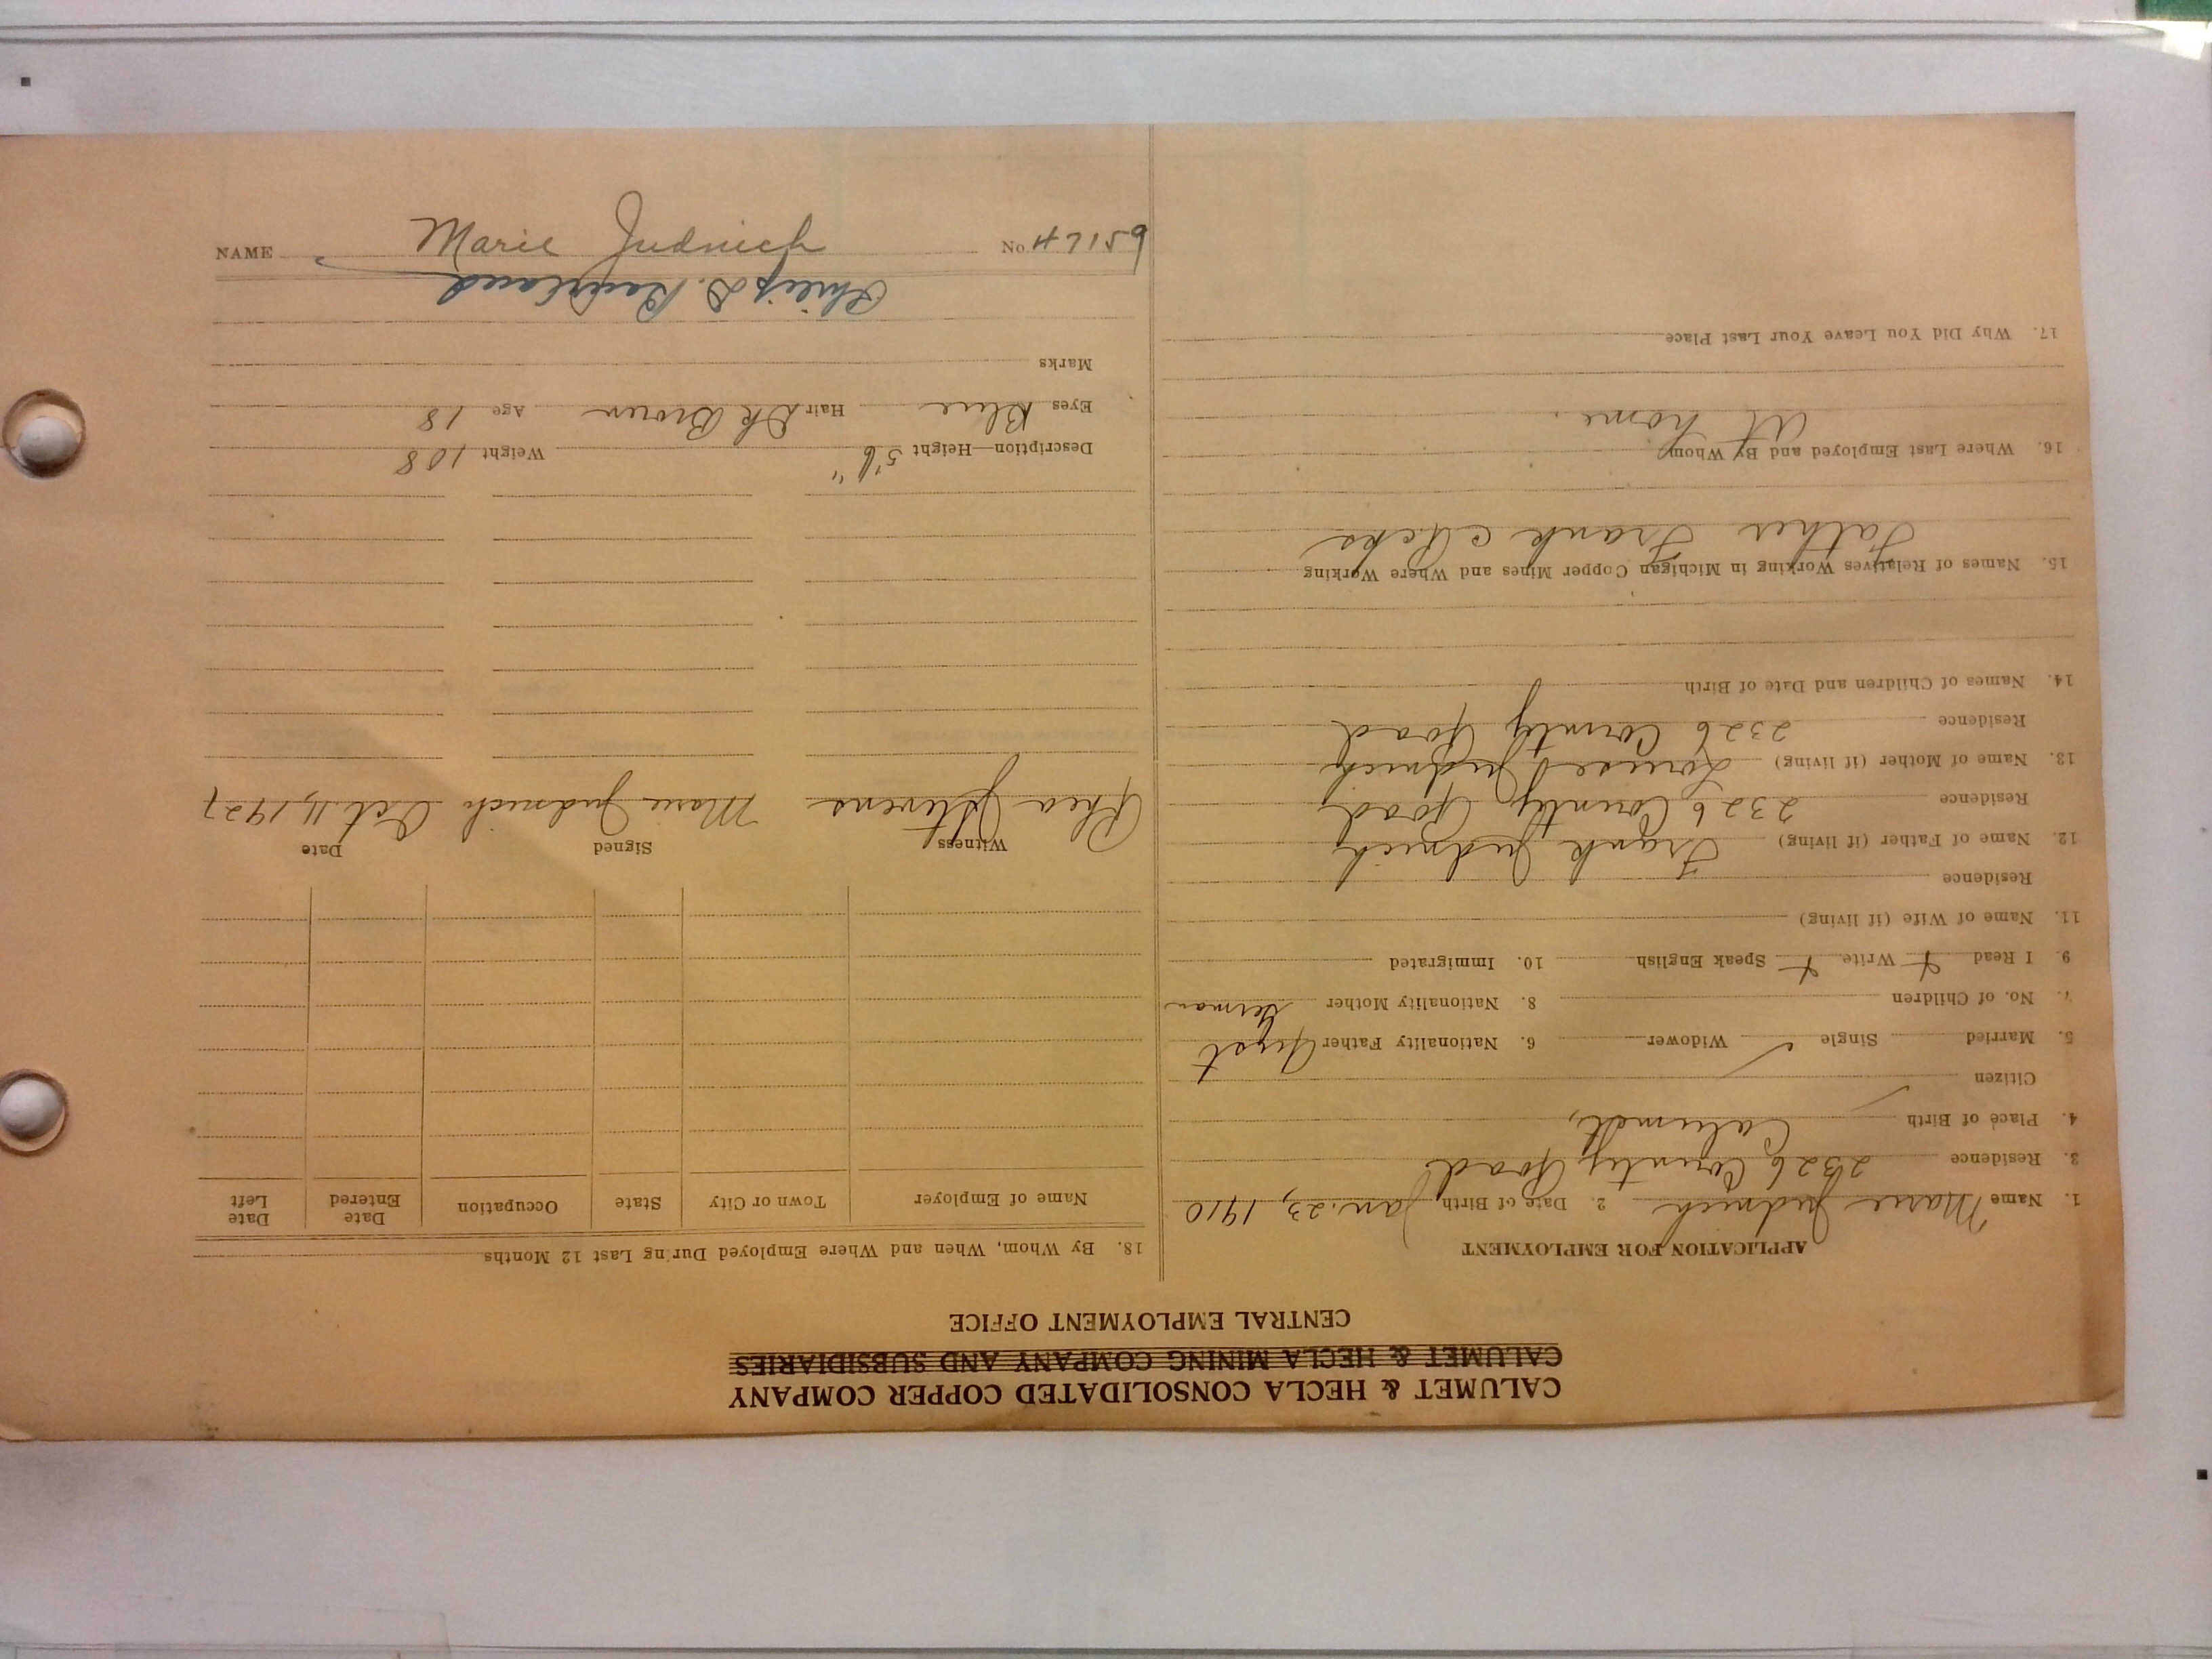 CALUMET & HECLA CONSOLIDATED COPPER COMPANY
CALUMET & HECLA MINING COMPANY AND SUBSIDIARIES
CENTRAL EMPLOYMENT OFFICE
APPLICATION FOR EMPLOYMENT
1. Name Marie Judnich 2. Date of Birth Jan. 23, 1910
3. Residence 2326 County Road
4. Place of Birth Calumet,
Citizen
5. Married Single ✓ Widower 6. Nationality Father
7. No. of Children 8. Nationality Mother German
9. I Read Write Speak English 10. Immigrated
11. Name of Wife (if living)
Residence
12. Name of Father (if living) Frank Judnich
Residence 2326 County Road
13. Name of Mother (if living) Louise Judnich
Residence 2326 County Road
14. Names of Children and Date of Birth
15. Names of Relatives Working in Michigan Copper Mines and Where Working
Father Frank
16. Where Last Employed and By Whom
At home.
17. Why Did You Leave Your Last Place
18. By Whom, When and Where Employed During Last 12 Months
Name of Employer Town or City State Occupation Date Entered Date Left
Witness Signed Date
Rhea Stevens Marie Judnich Oct. 11, 1927
Description—Height 5'6" Weight 108
Eyes Blue Hair Dk Brown Age 18
Marks
NAME Marie Judnich No. 47159